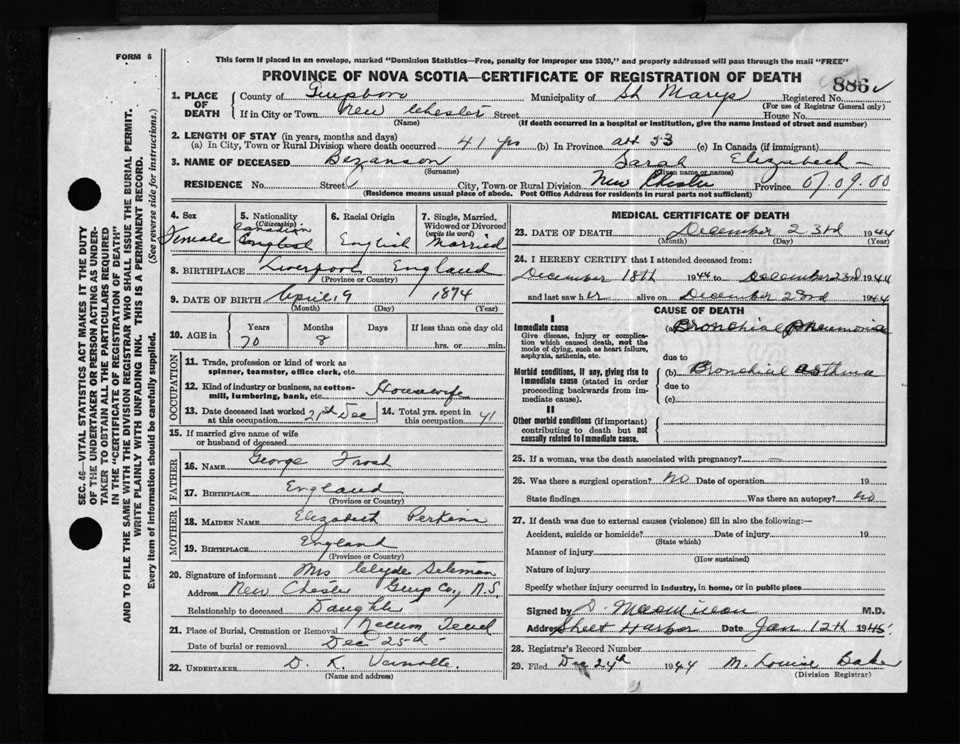 FORM 6
This form if placed in an envelope, marked "Dominion Statistics—Free, penalty for improper use $300," and properly addressed will pass through the mail "FREE"
PROVINCE OF NOVA SCOTIA—CERTIFICATE OF REGISTRATION OF DEATH
886
1. PLACE OF DEATH
County of Guysboro Municipality of St Marys Registered No.
(For use of Registrar General only)
If in City or Town New Chester Street House No.
(Name) (If death occurred in a hospital or institution, give the name instead of street and number)
2. LENGTH OF STAY (in years, months and days)
(a) In City, Town or Rural Division where death occurred 41 yrs (b) In Province 53 (c) In Canada (if immigrant)
3. NAME OF DECEASED Bezanson Sarah Elizabeth
(Surname) (Given name or names)
RESIDENCE No. Street City, Town or Rural Division New Chester Province 07.09.00
(Residence means usual place of abode. Post Office Address for residents in rural parts not sufficient)
4. Sex
Female
5. Nationality (Citizenship)
Canadian
English
6. Racial Origin
English
7. Single, Married, Widowed or Divorced (write the word)
Married
8. BIRTHPLACE Liverpool England
(Province or Country)
9. DATE OF BIRTH April 9 1874
(Month) (Day) (Year)
10. AGE in
Years Months Days If less than one day old
70 8 hrs. or min.
OCCUPATION
11. Trade, profession or kind of work as
spinner, teamster, office clerk, etc.
12. Kind of industry or business, as cotton-
mill, lumbering, bank, etc. Housewife
13. Date deceased last worked at this occupation 21st Dec
14. Total yrs. spent in this occupation 41
15. If married give name of wife
or husband of deceased
FATHER
16. NAME George Frost
17. BIRTHPLACE England
(Province or Country)
MOTHER
18. MAIDEN NAME Elizabeth Perkins
19. BIRTHPLACE England
(Province or Country)
20. Signature of informant Mrs Clyde
Address New Chester Guys Co, N.S.
Relationship to deceased Daughter
21. Place of Burial, Cremation or Removal Necum Teuch
Date of burial or removal Dec 25th
22. UNDERTAKER D. K.
(Name and address)
MEDICAL CERTIFICATE OF DEATH
23. DATE OF DEATH December 23rd 1944
(Month) (Day) (Year)
24. I HEREBY CERTIFY that I attended deceased from:
December 18th 1944 to December 23rd 1944
and last saw her alive on December 23rd 1944
CAUSE OF DEATH
I
Immediate cause
Give disease, injury or complication which caused death, not the mode of dying, such as heart failure, asphyxia, asthenia, etc.
(a) Bronchial Pneumonia
due to
Morbid conditions, if any, giving rise to immediate cause (stated in order proceeding backwards from immediate cause).
(b) Bronchial Asthma
due to
(c)
II
Other morbid conditions (if important) contributing to death but not causally related to immediate cause.
25. If a woman, was the death associated with pregnancy? —
26. Was there a surgical operation? No Date of operation 19
State findings Was there an autopsy? No
27. If death was due to external causes (violence) fill in also the following:—
Accident, suicide or homicide? Date of injury 19
(State which)
Manner of injury
(How sustained)
Nature of injury
Specify whether injury occurred in industry, in home, or in public place
Signed by M.D.
Address Sheet Harbor Date Jan 12th 1945
28. Registrar's Record Number
29. Filed Dec 24th 1944 M. Louise Baker
(Division Registrar)
SEC. 46—VITAL STATISTICS ACT MAKES IT THE DUTY
OF THE UNDERTAKER OR PERSON ACTING AS UNDER-
TAKER TO OBTAIN ALL THE PARTICULARS REQUIRED
IN THE "CERTIFICATE OF REGISTRATION OF DEATH"
AND TO FILE THE SAME WITH THE DIVISION REGISTRAR WHO SHALL ISSUE THE BURIAL PERMIT.
WRITE PLAINLY WITH UNFADING INK. THIS IS A PERMANENT RECORD.
Every item of information should be carefully supplied. (See reverse side for instructions.)